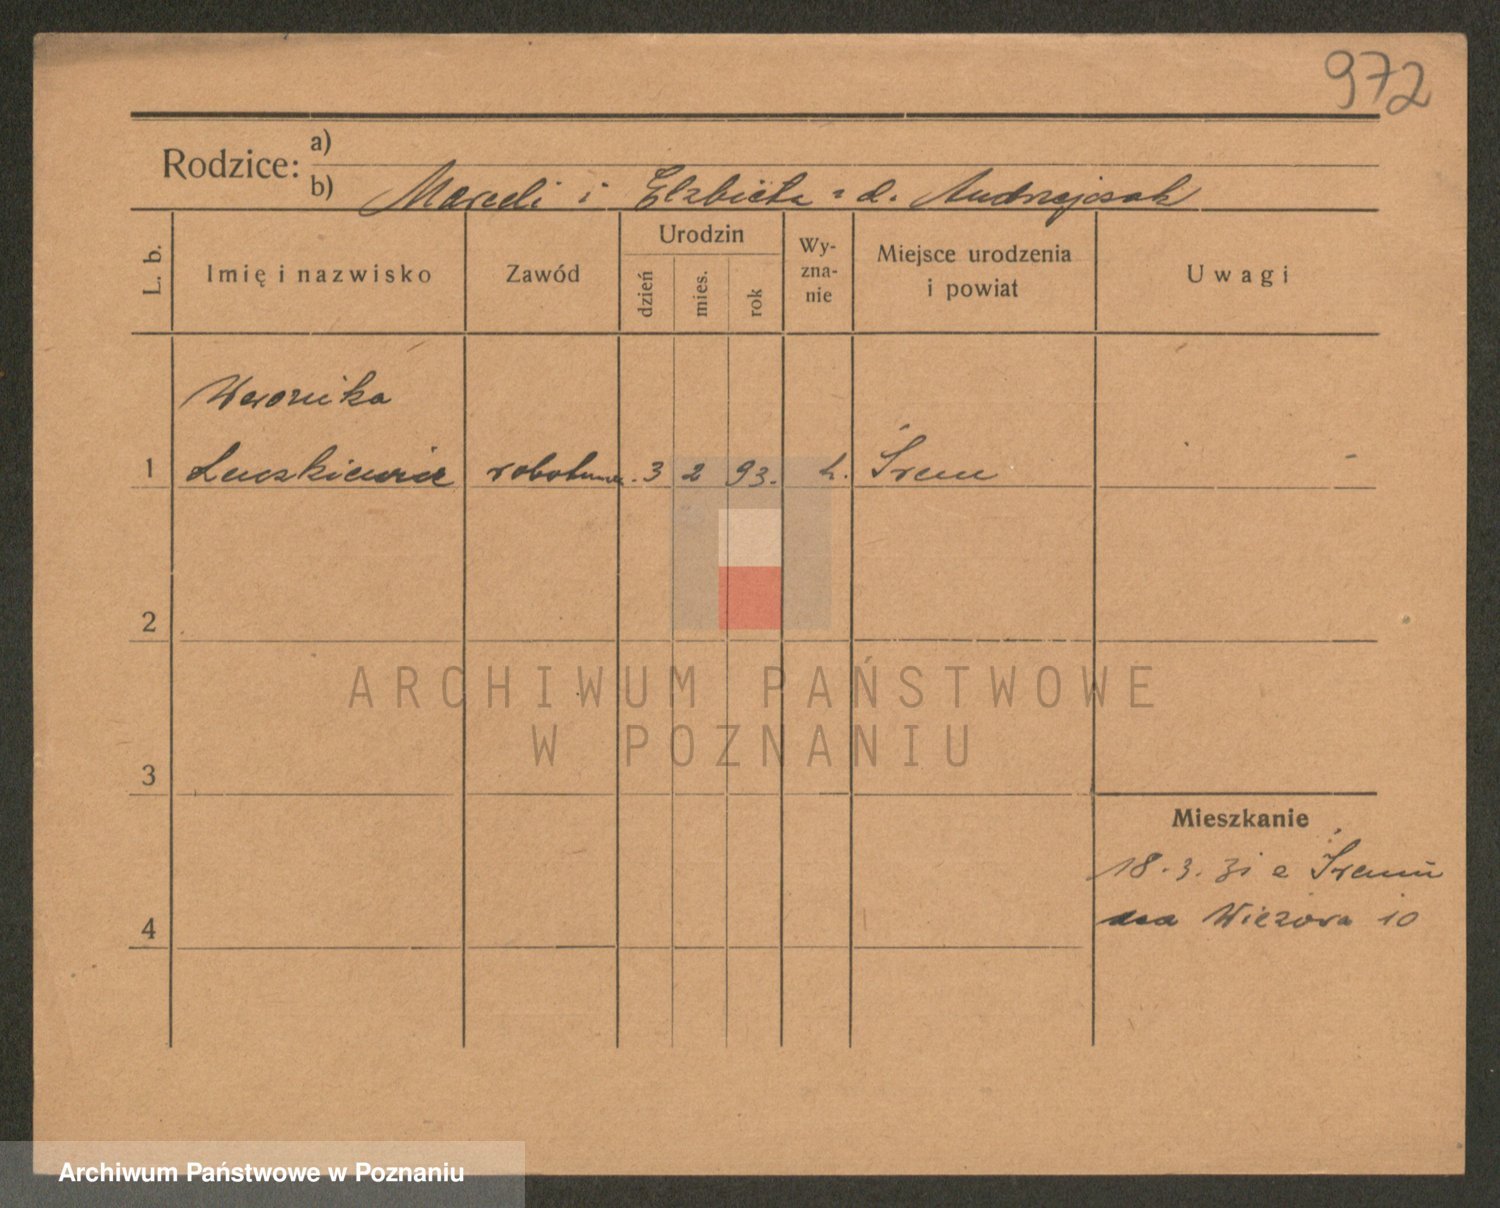 972
Rodzice:
a)
b) Marceli i Elżbieta z d. Andrzejczak
L. b.
Imię i nazwisko
Zawód
Urodzin
dzień
mies.
rok
Wy-
zna-
nie
Miejsce urodzenia
i powiat
Uwagi
Weronika
1 robotn. 3 2 93. k. Śrem
2
ARCHIWUM PAŃSTWOWE
W POZNANIU
3
Mieszkanie
18.3.31 Śremu
4 Wieżowa 10
Archiwum Państwowe w Poznaniu